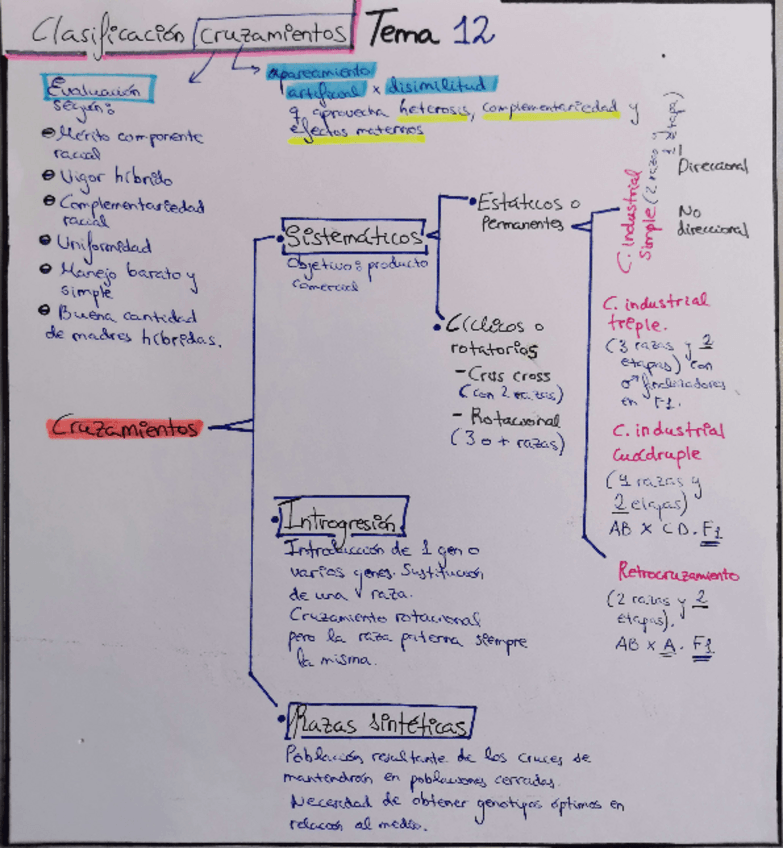 Clasificación cruzamientos Tema 12
Evaluación
según:
Mérito componente
racial
Vigor híbrido
Complementariedad
racial
Uniformidad
Manejo barato y
simple
Buena cantidad
de madres híbridas.
apareamiento
artificial x disimilitud
q aprovecha heterosis, complementariedad y
efectos maternos
Cruzamientos
Sistemáticos
Objetivo: producto
comercial
Estáticos o
Permanentes
C. Industrial
Simple (2 razas y
1 etapa)
Direccional
No
direccional
C. industrial
triple.
(3 razas y 2
etapas) con
♂ finalizadores
en F1.
C. industrial
Cuádruple
(4 razas y
2 etapas)
AB x CD. F1
Retrocruzamiento
(2 razas y 2
etapas).
AB x A. F1
Cíclicos o
rotatorios
- Criss cross
(con 2 razas)
- Rotacional
(3 o + razas)
Introgresión
Introducción de 1 gen o
varios genes. Sustitución
de una raza.
Cruzamiento rotacional
pero la raza paterna siempre
la misma.
Razas sintéticas
Población resultante de los cruces se
mantendrán en poblaciones cerradas.
Necesidad de obtener genotipos óptimos en
relación al medio.